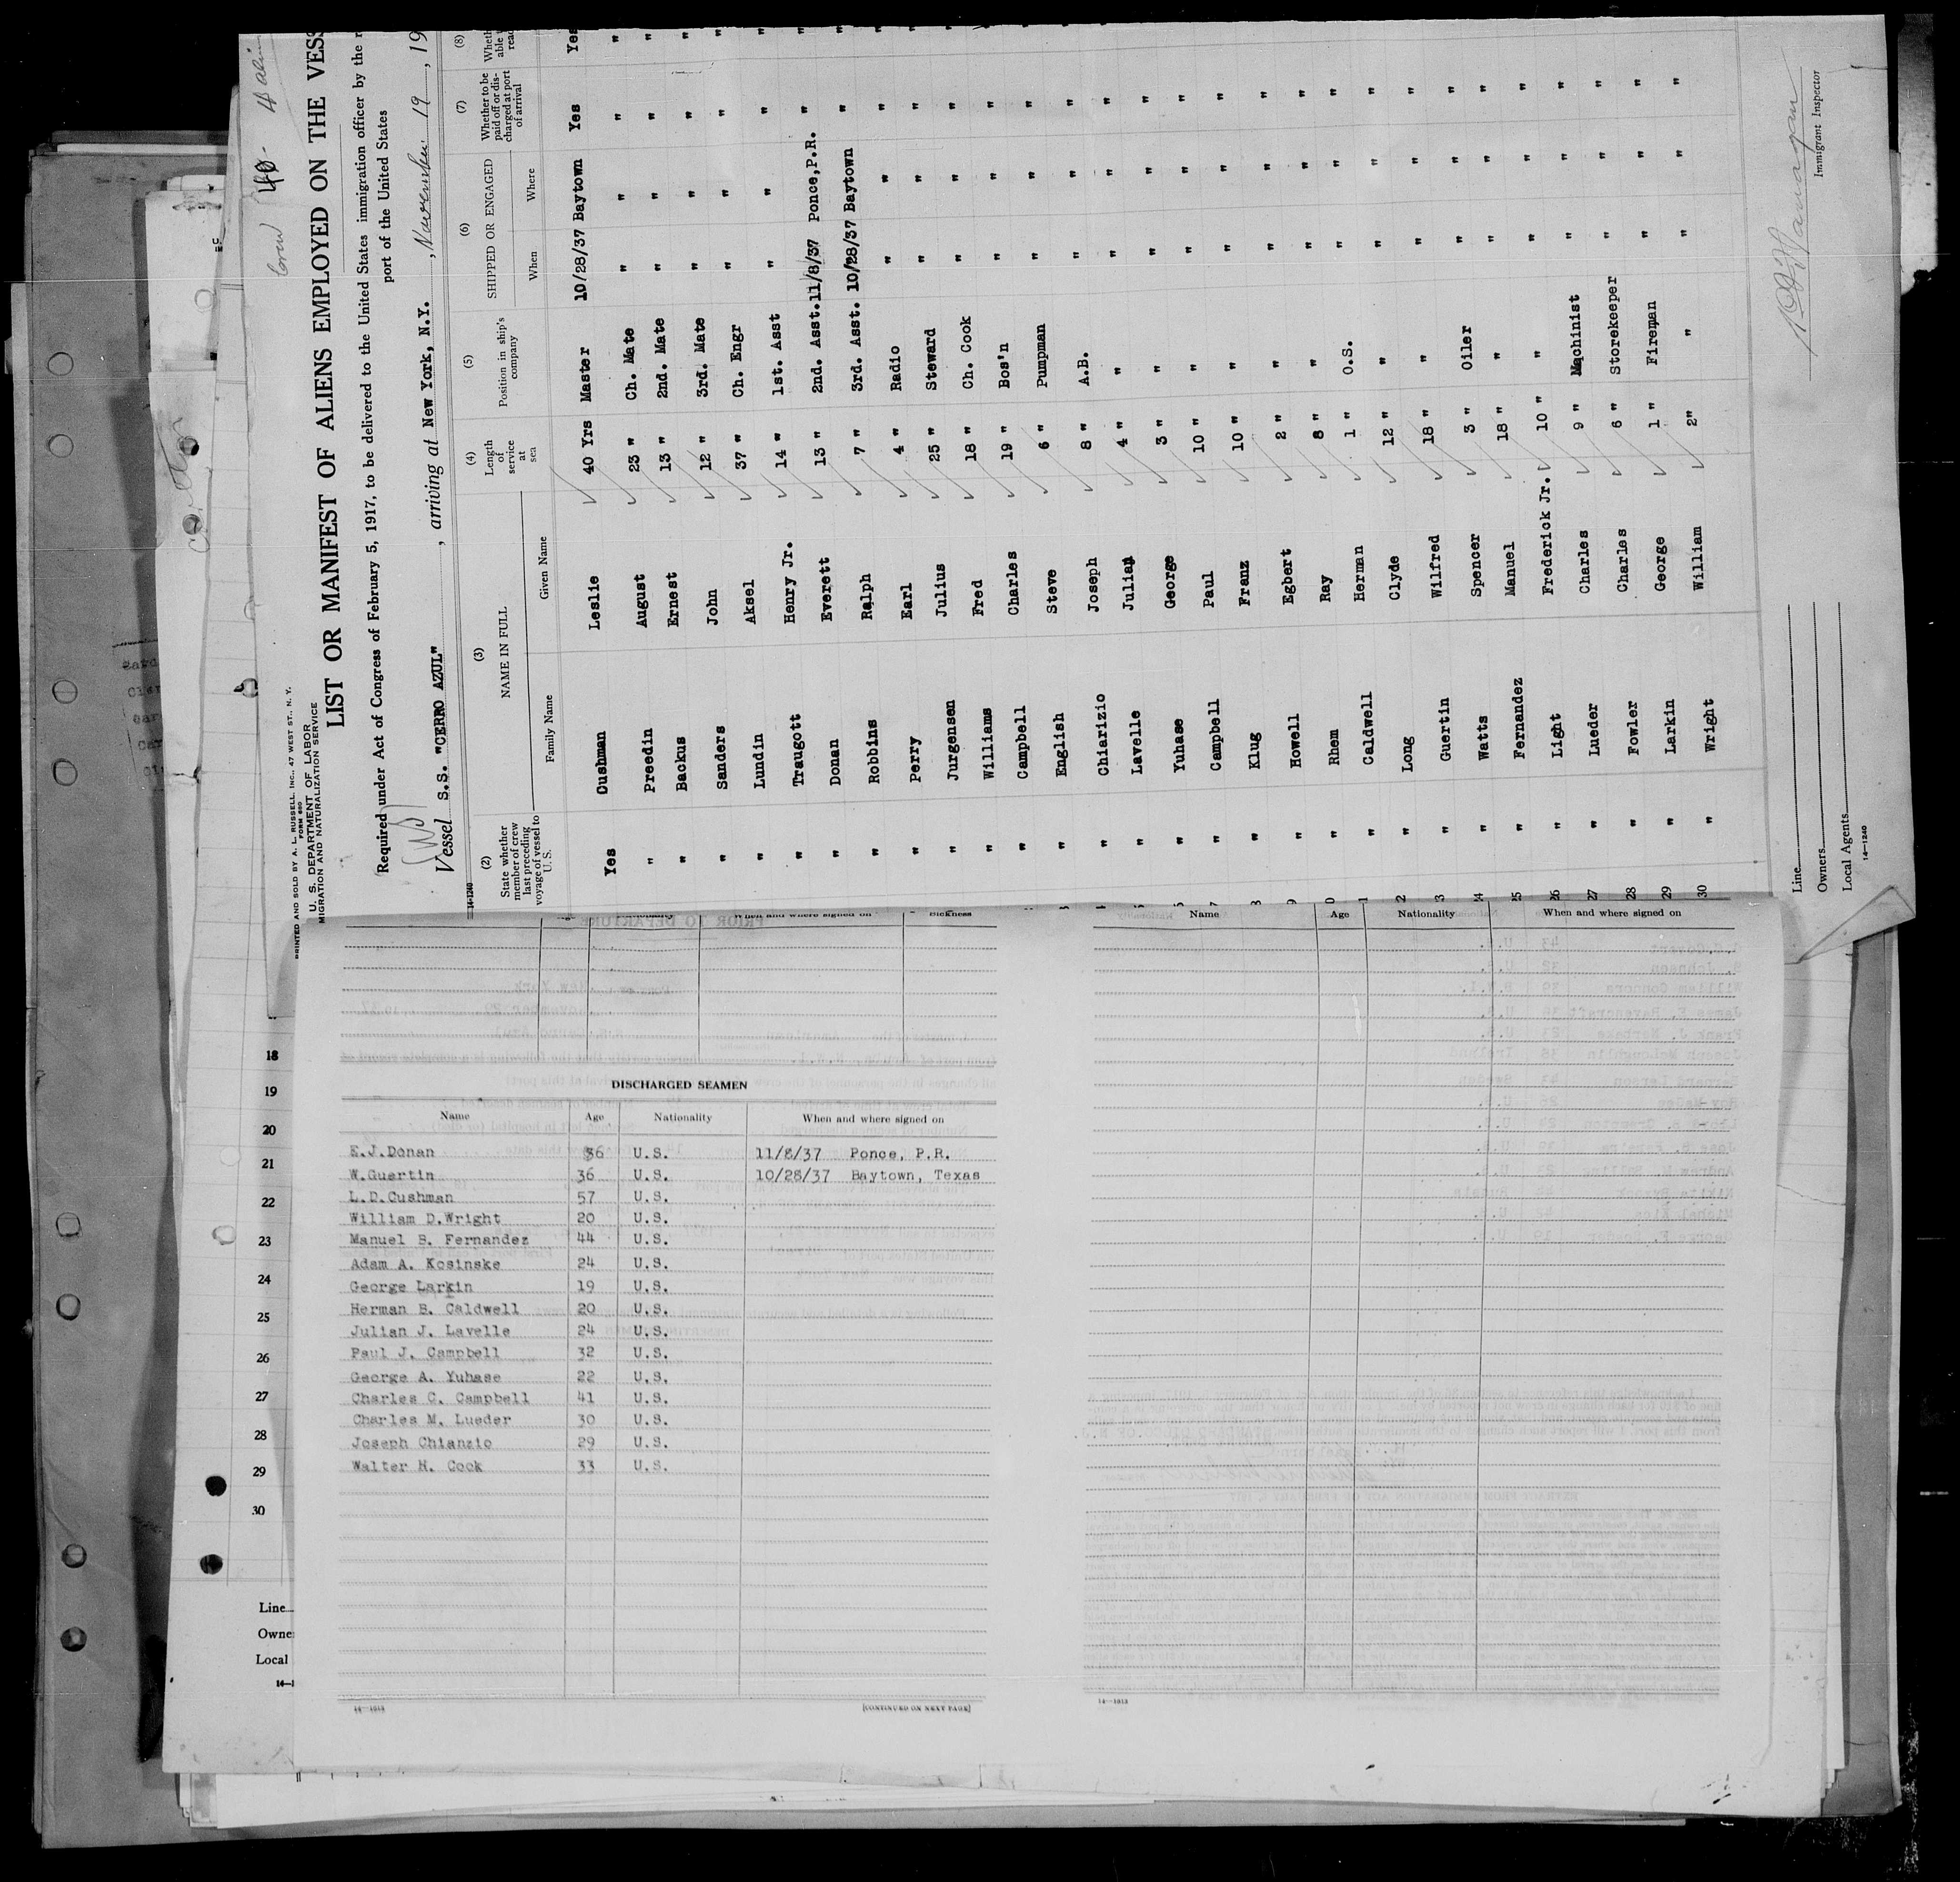 PRINTED AND SOLD BY A. L. RUSSELL, INC., 47 WEST ST., N. Y.
FORM 680
U. S. DEPARTMENT OF LABOR
MIGRATION AND NATURALIZATION SERVICE
Crew 40- 4
LIST OR MANIFEST OF ALIENS EMPLOYED ON THE VESS
Required under Act of Congress of February 5, 1917, to be delivered to the United States immigration officer by the r
port of the United States
Vessel S.S. "CERRO AZUL" , arriving at New York, N.Y. , November 19 , 19
14-1240
(2) (3) (4) (5) (6) (7) (8)
State whether member of crew last preceding voyage of vessel to U. S. NAME IN FULL Family Name Given Name Length of service at sea Position in ship's company SHIPPED OR ENGAGED When Where Whether to be paid off or discharged at port of arrival
Yes Cushman Leslie 40 Yrs Master 10/28/37 Baytown Yes Yes
" Preedin August 23 " Ch. Mate " " " "
" Backus Ernest 13 " 2nd. Mate " " " "
" Sanders John 12 " 3rd. Mate " " " "
" Lundin Aksel 37 " Ch. Engr " " " "
" Traugott Henry Jr. 14 " 1st. Asst " " " "
" Donan Everett 13 " 2nd. Asst. 11/8/37 Ponce,P.R. " "
" Robbins Ralph 7 " 3rd. Asst. 10/28/37 Baytown " "
" Perry Earl 4 " Radio " " " "
" Jurgensen Julius 25 " Steward " " " "
" Williams Fred 18 " Ch. Cook " " " "
" Campbell Charles 19 " Bos'n " " " "
" English Steve 6 " Pumpman " " " "
" Chiarizio Joseph 8 " A.B. " " " "
" Lavelle Julian 4 " " " " " "
" Yuhase George 3 " " " " " "
" Campbell Paul 10 " " " " " "
" Klug Franz 10 " " " " " "
" Howell Egbert 2 " " " " "
" Rhem Ray 8 " " " " "
" Caldwell Herman 1 " O.S. " " "
" Long Clyde 12 " " " " "
" Guertin Wilfred 18 " " " " "
24 " Watts Spencer 3 " Oiler " " "
25 " Fernandez Manuel 18 " " " " "
26 " Light Frederick Jr. 10 " " " " "
27 " Lueder Charles 9 " Machinist " " "
28 " Fowler Charles 6 " Storekeeper " " "
29 " Larkin George 1 " Fireman " " "
30 " Wright William 2" " " " "
Line
Owners
Local Agents
14-1240
Immigrant Inspector
18
19
20
21
22
23
24
25
26
27
28
29
30
Line
Owne
Local
14-1
When and where signed on Sickness
DISCHARGED SEAMEN
Name Age Nationality When and where signed on
E.J.Donan 36 U.S. 11/8/37 Ponce, P.R.
W.Guertin 36 U.S. 10/28/37 Baytown, Texas
L.D.Cushman 57 U.S.
William D.Wright 20 U.S.
Manuel S. Fernandez 44 U.S.
Adam A. Kosinske 24 U.S.
George Larkin 19 U.S.
Herman B. Caldwell 20 U.S.
Julian J. Lavelle 24 U.S.
Paul J. Campbell 32 U.S.
George A. Yuhase 22 U.S.
Charles C. Campbell 41 U.S.
Charles M. Lueder 30 U.S.
Joseph Chianzio 29 U.S.
Walter H. Cook 33 U.S.
14—1013 [CONTINUED ON NEXT PAGE]
Name Age Nationality When and where signed on
14—1013